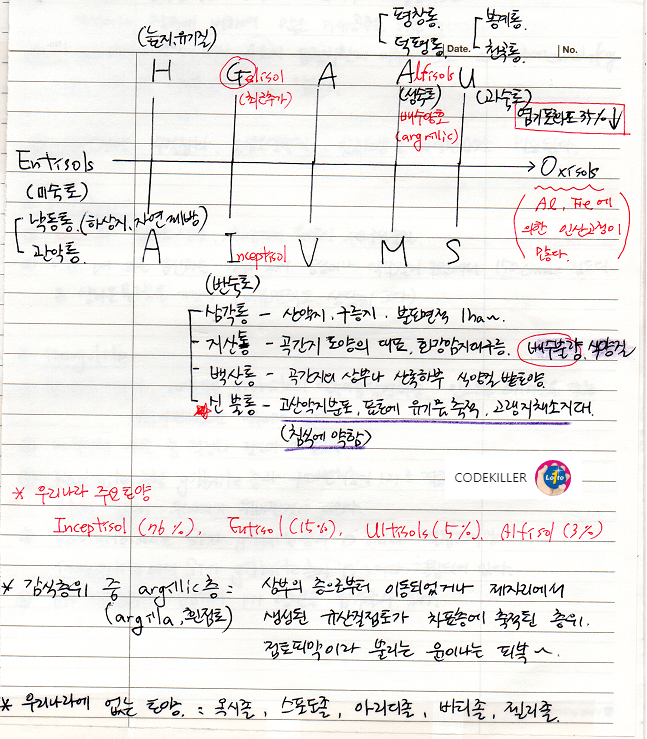 평창통. 봉계통.
덕평통, Date. 천곡통. No.
(늪지, 유기질)
H Gelisol A Alfisols U
(최근추가) (성숙토) (과숙토)
배수양호 염기포화도 35% ↓
(argillic)
Entisols → Oxisols
(미숙토)
낙동통. (하상지, 자연제방) (Al, Fe에
관악통. 의한 인산고정이
많다.)
A Inceptisol V M S
(반숙토)
삼각통 - 산악지, 구릉지. 분포면적 1han.
- 지산통 - 곡간지 토양의 대표, 화강암지대구릉. 배수불량, 식양질
- 백산통 - 곡간지의 상부나 산록하부 식양질 밭토양.
신불통 - 고산악지분포, 표토에 유기물 축적, 고랭지채소지대.
(침식에 약함)
CODEKILLER Lotto
* 우리나라 주요토양
Inceptisol (76%), Entisol (15%), Ultisols (5%), Alfisol (3%)
* 감식층위 중 argillic층 = 상부의 층으로부터 이동되었거나 제자리에서
(argilla, 흰점토) 생성된 규산질점토가 차표층에 축적된 층위.
점토피막이라 불리는 윤이나는 피복~
* 우리나라에 없는 토양. = 옥시졸, 스포도졸, 아리디졸, 버티졸, 젤리졸.